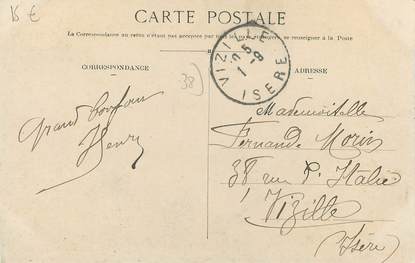 15 €
CARTE POSTALE
La Correspondance au recto n'étant pas acceptée par tous les pays étrangers, se renseigner à la Poste
CORRESPONDANCE
ADRESSE
VIZILLE
ISERE
38
Grand bonjour
Henry
Mademoiselle
Fernande Morin
38 rue P. Italie
Vizille
(Isère)